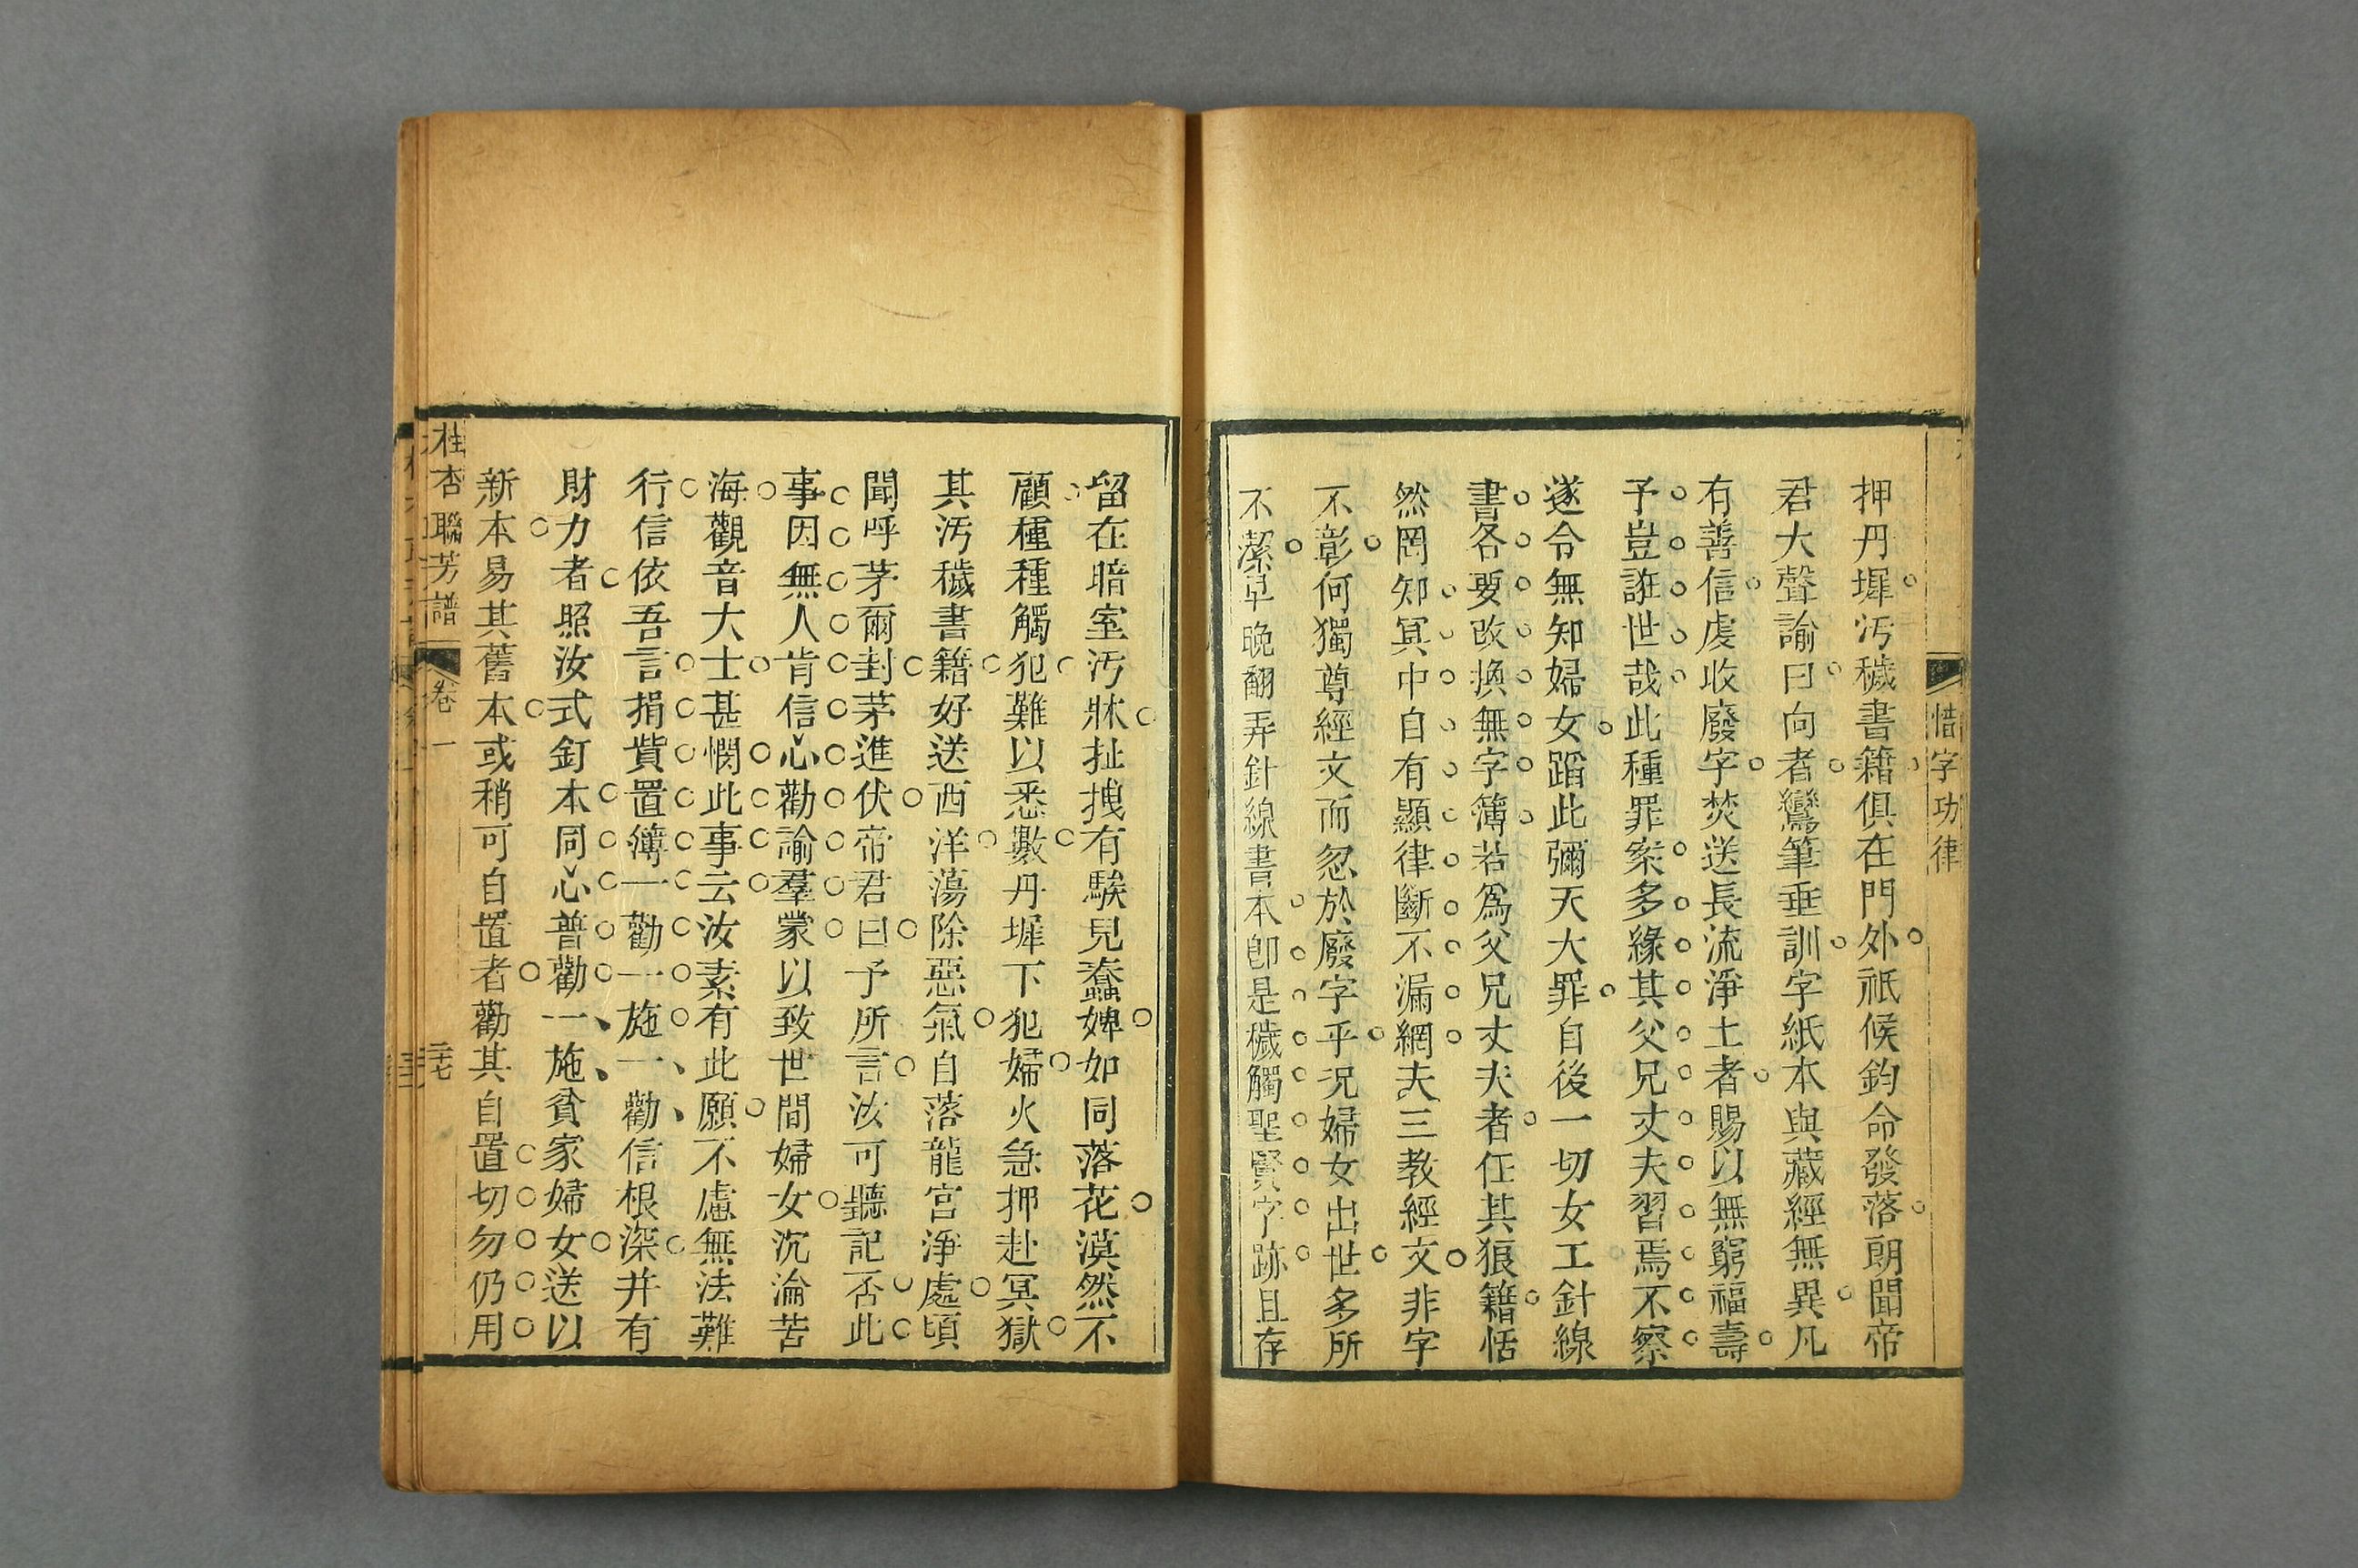 惜字功律
押丹墀汚穢書籍俱在門外祇候鈞命發落朗聞帝
君大聲諭曰向者鸞筆垂訓字紙本與藏經無異凡
有善信虔收廢字焚送長流淨土者賜以無窮福壽
予豈誑世哉此種罪案多緣其父兄丈夫習焉不察
遂令無知婦女蹈此彌天大罪自後一切女工針線
書各要改換無字簿若爲父兄丈夫者任其狼籍恬
然罔知冥中自有顯律斷不漏網夫三教經文非字
不彰何獨尊經文而忽於廢字乎況婦女出世多所
不潔早晚翻弄針線書本卽是穢觸聖賢字跡且存
留在暗室汚牀扯拽有騃兒蠢婢如同落花漠然不
顧種種觸犯難以悉數丹墀下犯婦火急押赴冥獄
其汚穢書籍好送西洋蕩除惡氣自落龍宮淨處頃
聞呼茅爾封茅進伏帝君曰予所言汝可聽記否此
事因無人肯信心勸諭羣蒙以致世間婦女沉淪苦
海觀音大士甚憫此事云汝素有此願不慮無法難
行信依吾言捐貲置簿一勸一施一勸信根深幷有
財力者照汝式釘本同心普勸一施貧家婦女送以
新本易其舊本或稍可自置者勸其自置切勿仍用
桂杏聯芳譜
卷一
三十七